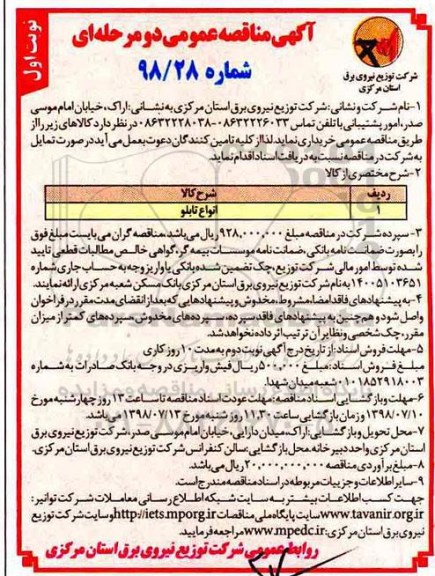 نوبت اول
آگهی مناقصه عمومی دو مرحله‌ای
شماره ۹۸/۲۸
شرکت توزیع نیروی برق
استان مرکزی
۱-نام شرکت و نشانی: شرکت توزیع نیروی برق استان مرکزی به نشانی: اراک، خیابان امام موسی
صدر، امور پشتیبانی با تلفن تماس ۰۸۶۳۲۲۲۶۰۳۳-۰۸۶۳۲۲۲۸۰۳۸ در نظر دارد کالاهای زیر را از
طریق مناقصه عمومی خریداری نماید. لذا از کلیه تامین کنندگان دعوت بعمل می آید در صورت تمایل
به شرکت در مناقصه نسبت به دریافت اسناد اقدام نمایند.
۲-شرح مختصری از کالا
ردیف شرح کالا
۱ انواع تابلو
۳- سپرده شرکت در مناقصه مبلغ ۹۲۸,۰۰۰,۰۰۰ ریال می باشد. مناقصه گران می بایست مبلغ فوق
را بصورت ضمانت نامه بانکی، ضمانت نامه موسسات بیمه گر، گواهی خالص مطالبات قطعی تایید
شده توسط امور مالی شرکت توزیع، چک تضمین شده بانکی یا واریز وجه به حساب جاری شماره
۱۴۰۰۵۱۰۳۶۵۱ به نام شرکت توزیع نیروی برق استان مرکزی بانک مسکن شعبه مرکزی ارائه نمایند.
۴-به پیشنهادهای فاقد امضا، مشروط، مخدوش و پیشنهادهایی که بعد از انقضای مدت مقرر در فراخوان
واصل شود و هم چنین به پیشنهادهای فاقد سپرده، سپرده های مخدوش، سپرده های کمتر از میزان
مقرر، چک شخصی و نظایر آن ترتیب اثر داده نخواهد شد.
۵-مهلت فروش اسناد: از تاریخ درج آگهی نوبت دوم به مدت ۱۰ روز کاری
مبلغ فروش اسناد: مبلغ ۵۰۰,۰۰۰ ریال فیش واریزی در وجه بانک صادرات به شماره
۰۱۰۱۸۵۲۹۱۸۰۰۳ شعبه میدان شهدا.
۶-مهلت و بازگشایی اسناد مناقصه: مهلت عودت اسناد مناقصه تا ساعت ۱۳ روز چهارشنبه مورخ
۱۳۹۸/۰۷/۱۰ و زمان بازگشایی ساعت ۱۱,۳۰ روز شنبه مورخ ۱۳۹۸/۰۷/۱۳ می باشد.
۷-محل تحویل و بازگشایی: اراک، میدان دارایی، خیابان امام موسی صدر، شرکت توزیع نیروی برق
استان مرکزی واحد دبیرخانه. محل بازگشایی: سالن کنفرانس شرکت توزیع نیروی برق استان مرکزی.
۸-مبلغ برآوردی مناقصه ۲۰,۰۰۰,۰۰۰,۰۰۰ ریال می باشد.
۹-سایر اطلاعات و جزییات مربوطه در اسناد مناقصه مندرج است.
جهت کسب اطلاعات بیشتر به سایت شبکه اطلاع رسانی معاملات شرکت توانیر:
www.tavanir.org.ir سایت پایگاه ملی مناقصات http://iets.mporg.ir و سایت شرکت توزیع
نیروی برق استان مرکزی: www.mpedc.ir مراجعه فرمایید.
روابط عمومی شرکت توزیع نیروی برق استان مرکزی